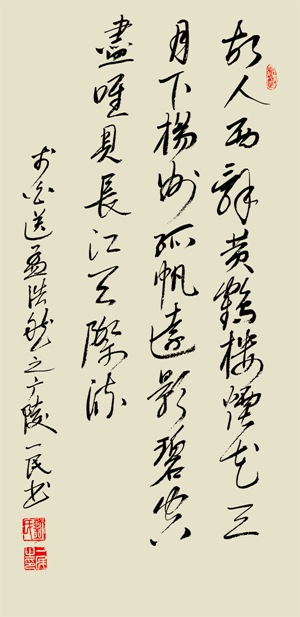 故人西辞黄鶴楼煙花三
月下楊州孤帆遠影碧空
盡唯見長江天際流
李白送孟浩然之广陵一民书